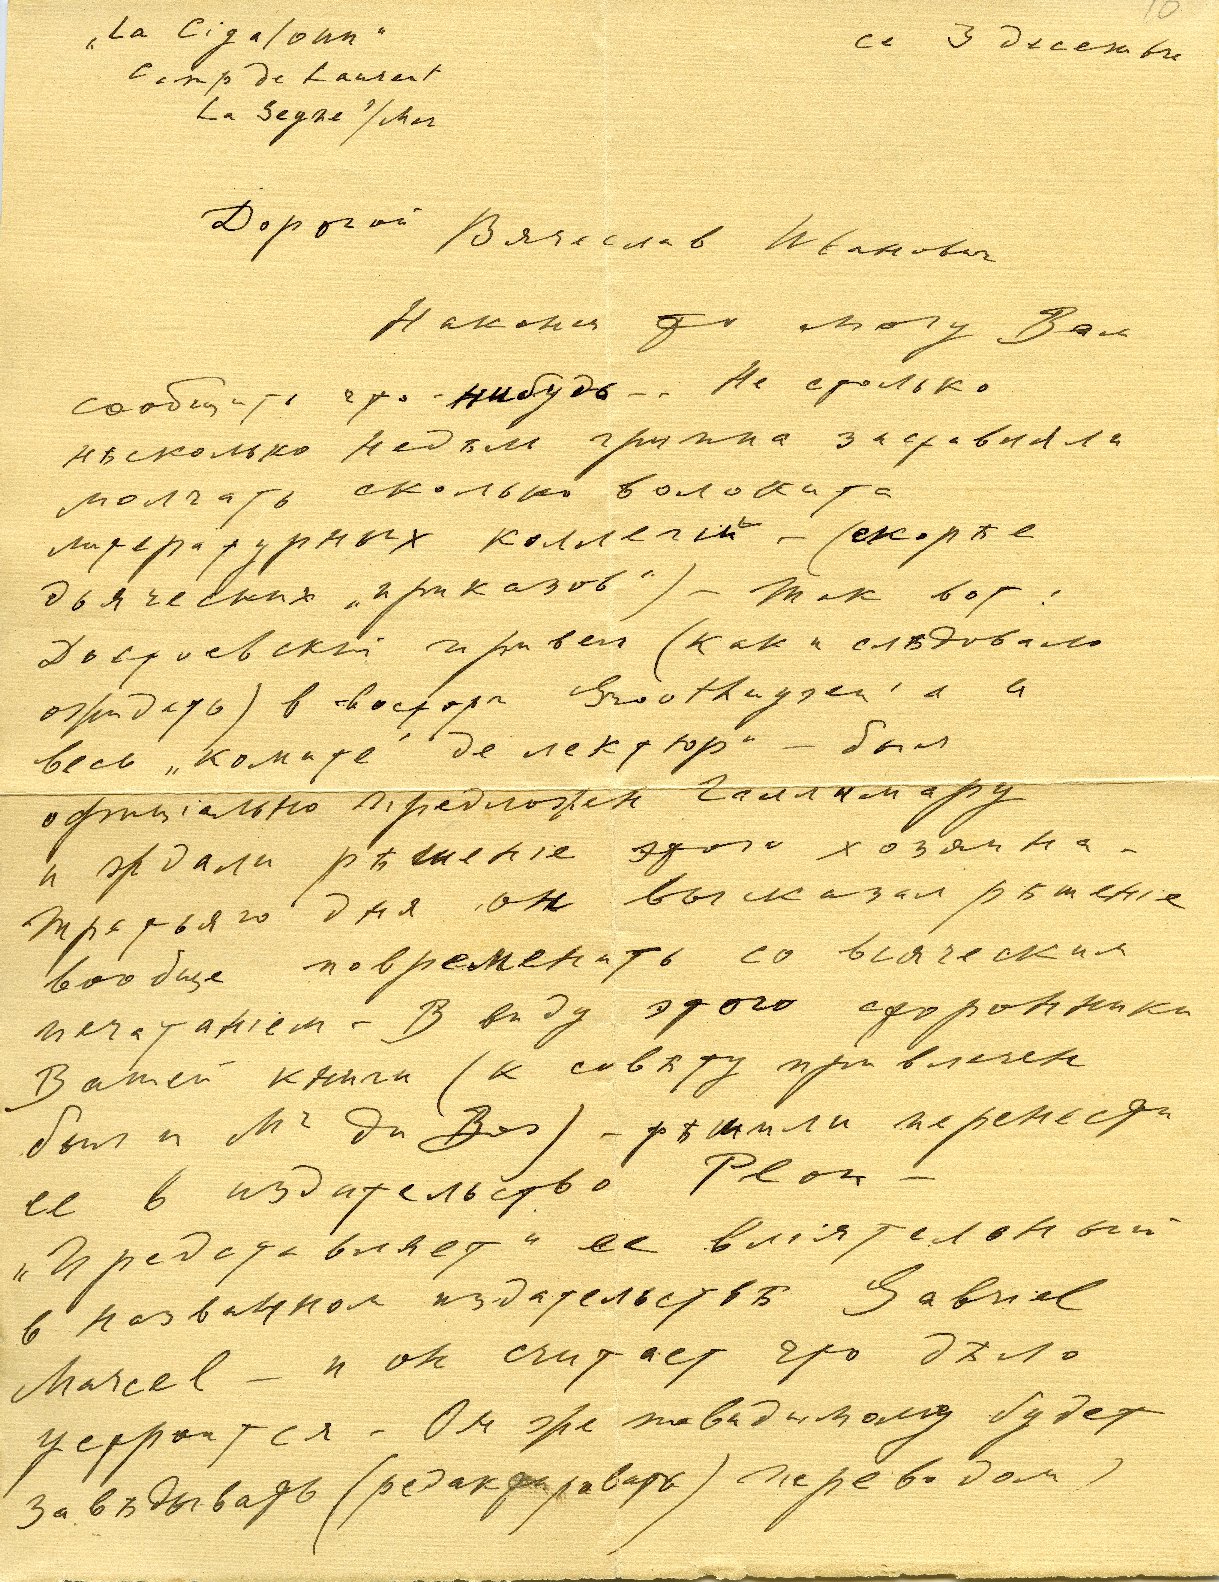 10
„La Cigaloun“
Camp de Laurent
La Seyne s/Mer
ce 3 decembre
Дорогой Вячеслав Иванович
Наконец то могу Вам
сообщить что-нибудь -. Не столько
нѣсколько недѣль гриппа заставляли
молчать сколько волокита
литературных коллегій – (скорѣе
дьяческих „приказов“) – Так вот:
Достоевскій привел (как и слѣдовало
ожидать) в восторг Groethuysen'а и
весь „комитé де лектюр“ – был
офиціально предложен Галлимару
и ждали рѣшеніе этого хозяина –
Третьяго дня он высказал рѣшеніе
вообще повременить со всяческим
печатаніем – В виду этого сторонники
Вашей книги (к совѣту привлечен
был и Mr Du Bos) – рѣшили перенести
ее в издательство Plon –
„Представляет“ ее вліятельный
в названном издательствѣ Gabriel
Marcel – и он считает что дѣло
устроится – Он же повидимому будет
завѣдывать (редактировать) переводом)